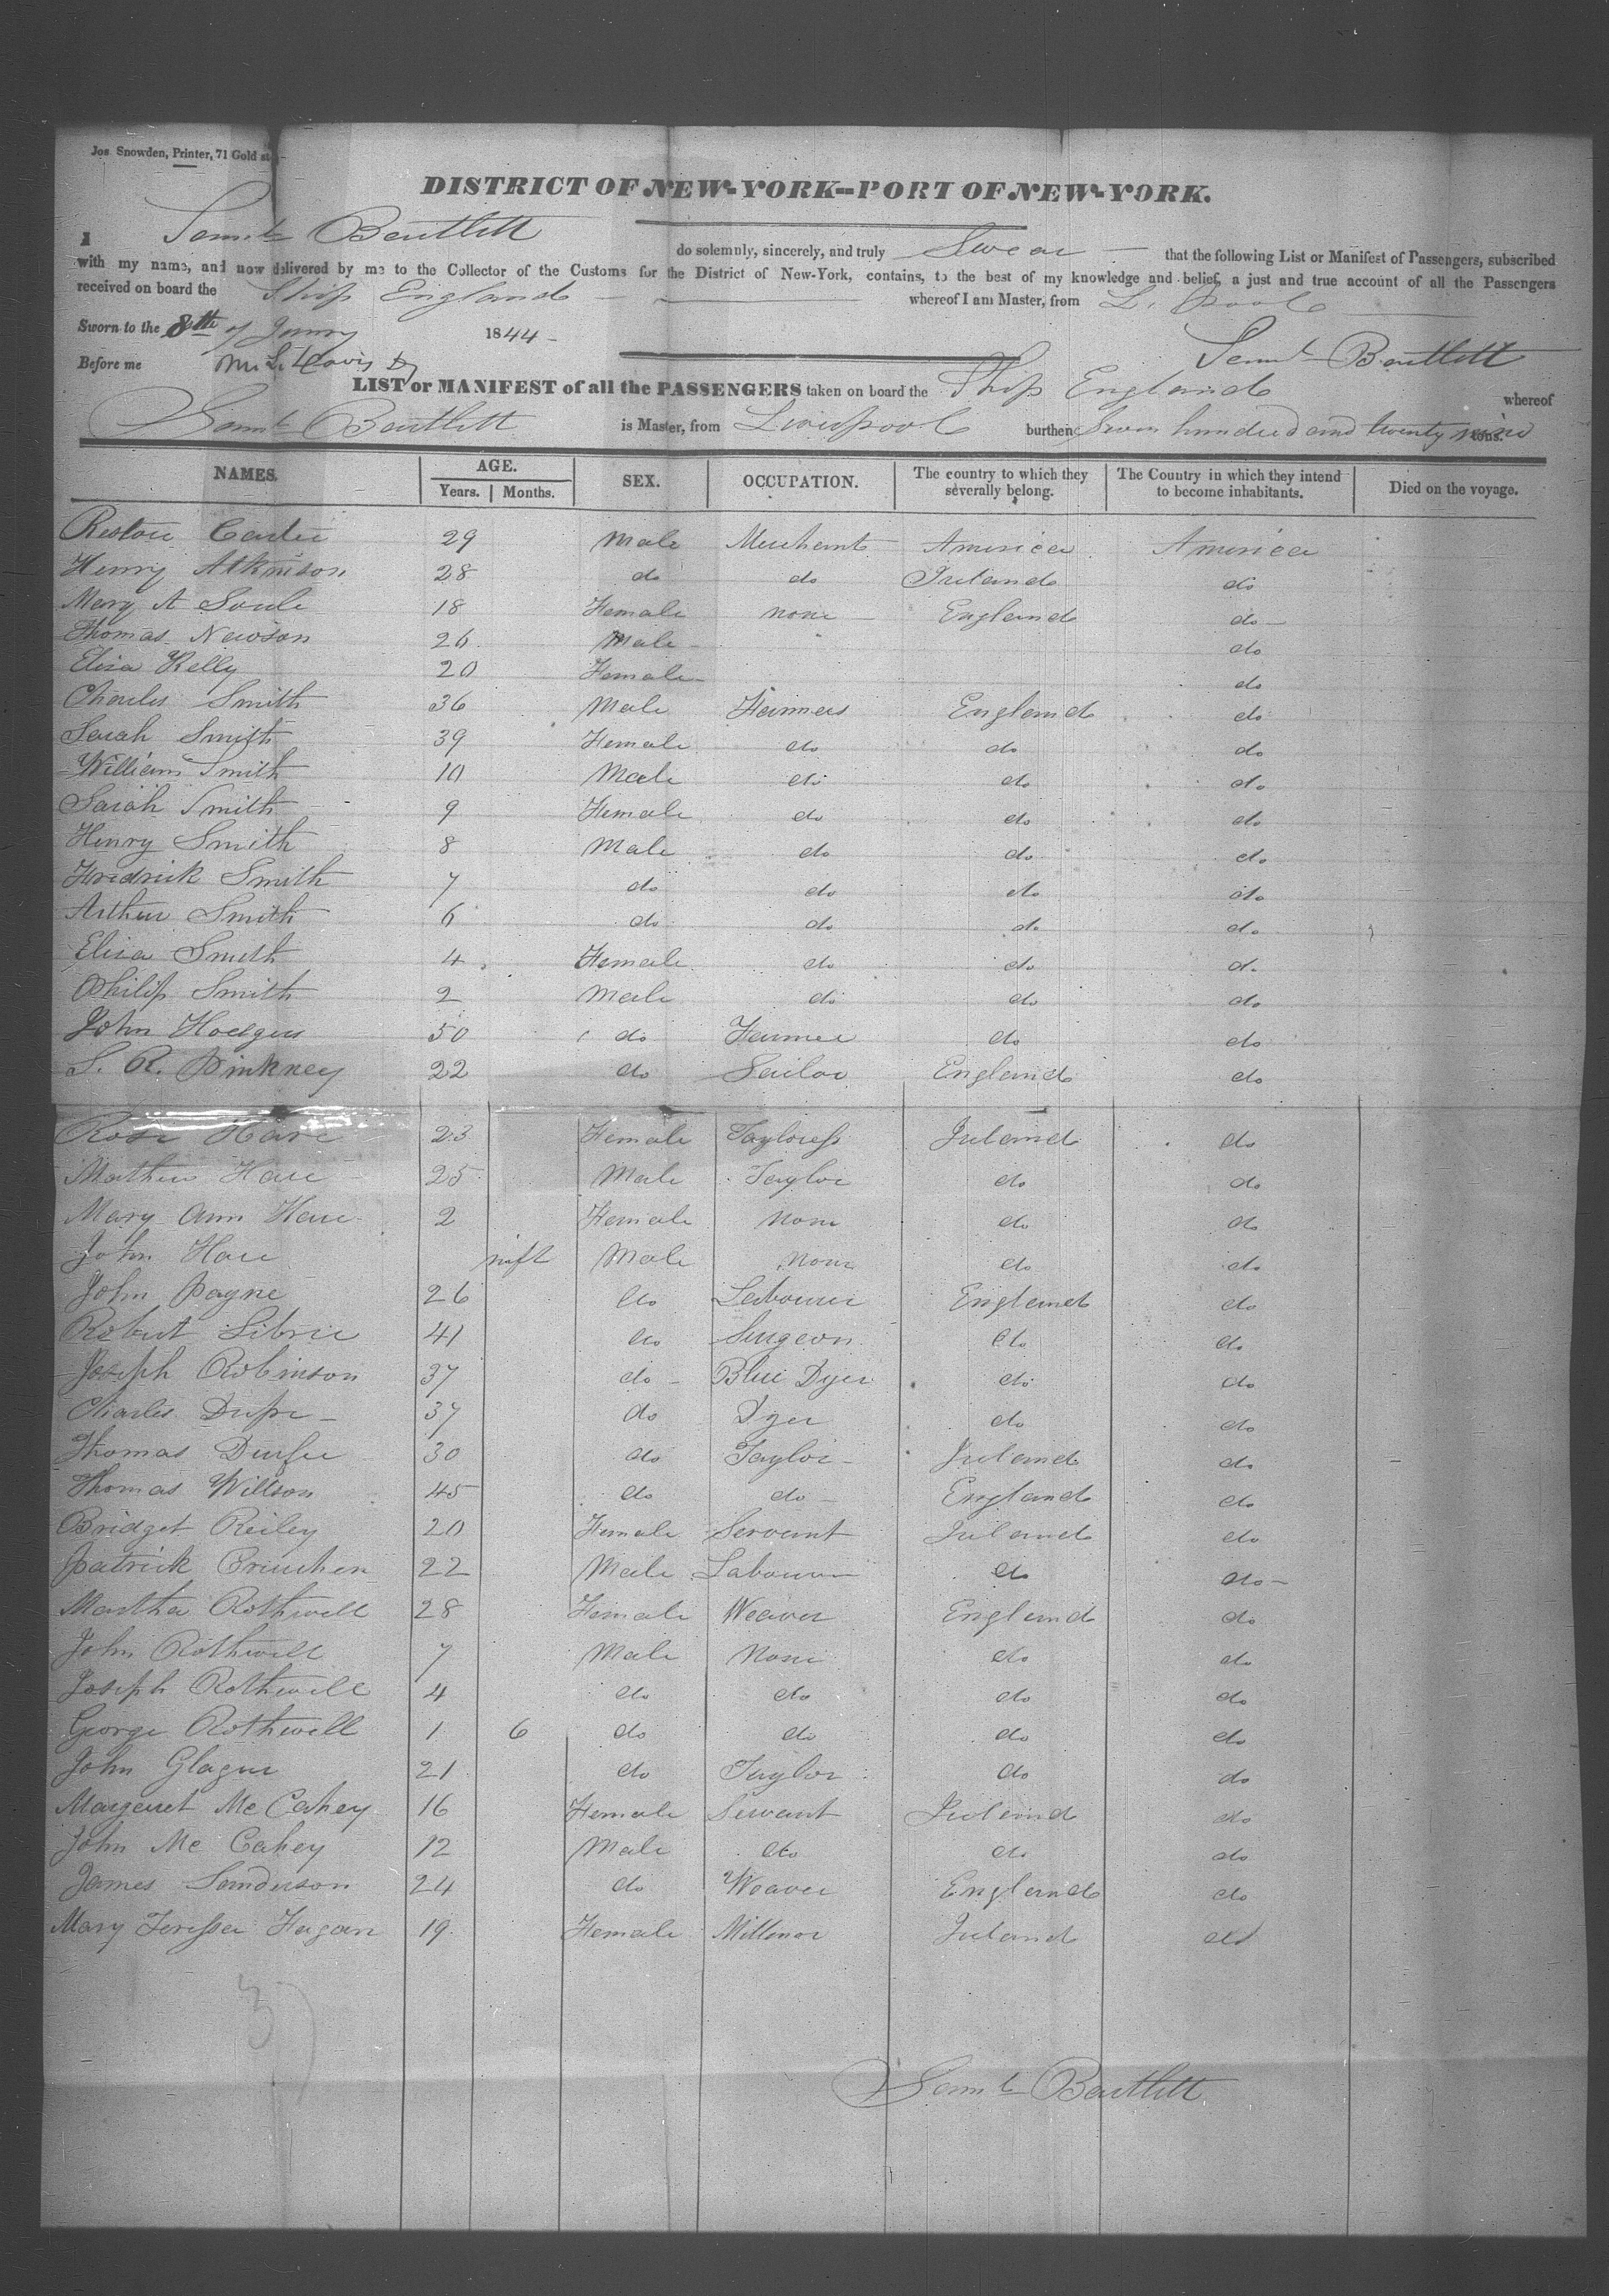 Jos Snowden, Printer, 71 Gold st
DISTRICT OF NEW-YORK--PORT OF NEW-YORK.
I Saml Bartlett do solemnly, sincerely, and truly Swear that the following List or Manifest of Passengers, subscribed
with my name, and now delivered by me to the Collector of the Customs for the District of New-York, contains, to the best of my knowledge and belief, a just and true account of all the Passengers
received on board the Ship England whereof I am Master, from L.pool
Sworn to the 8th of Janry 1844 Saml Bartlett
Before me M. L. Davis
LIST or MANIFEST of all the PASSENGERS taken on board the Ship England whereof
Saml Bartlett is Master, from Liverpool burthen Seven hundred and twenty nine tons.
NAMES. AGE. SEX. OCCUPATION. The country to which they severally belong. The Country in which they intend to become inhabitants. Died on the voyage.
Years. Months.
Carter 29 Male Merchant America America
Henry Atkinson 28 do do Ireland do
Mary A Soule 18 Female none England do
Thomas Newson 26 Male " do
Eliza Kelly 20 Female do
Charles Smith 36 Male Farmers England do
Sarah Smith 39 Female do do do
William Smith 10 Male do do do
Sarah Smith 9 Female do do do
Henry Smith 8 Male do do do
Fredrick Smith 7 do do do do
Arthur Smith 6 do do do do
Eliza Smith 4 Female do do do
Philip Smith 2 Male do do do
John Hodgers 50 do Farmer do do
S. R. Pinkney 22 do Sailor England do
Rose Hare 23 Female Tayloress Ireland do
Mathew Hare 25 Male Taylor do do
Mary Ann Hare 2 Female None do do
John Hare inft Male None do do
John Payne 26 do Labourer England do
Robert 41 do Surgeon do do
Joseph Robinson 37 do Blue Dyer do do
Charles 37 do Dyer do do
Thomas Durfee 30 do Taylor Ireland do
Thomas Willson 45 do do England do
Bridget Reiley 20 Female Servant Ireland do
Patrick 22 Male Labourer do do
Martha Rothwell 28 Female Weaver England do
John Rothwell 7 Male None do do
Joseph Rothwell 4 do do do do
George Rothwell 1 6 do do do do
John 21 do Taylor do do
Margaret Mc Cahey 16 Female Servant Ireland do
John Mc Cahey 12 Male do do do
James Sanderson 24 do Weaver England do
Mary Teressa Fagan 19 Female Millenor Ireland do
Saml Bartlett